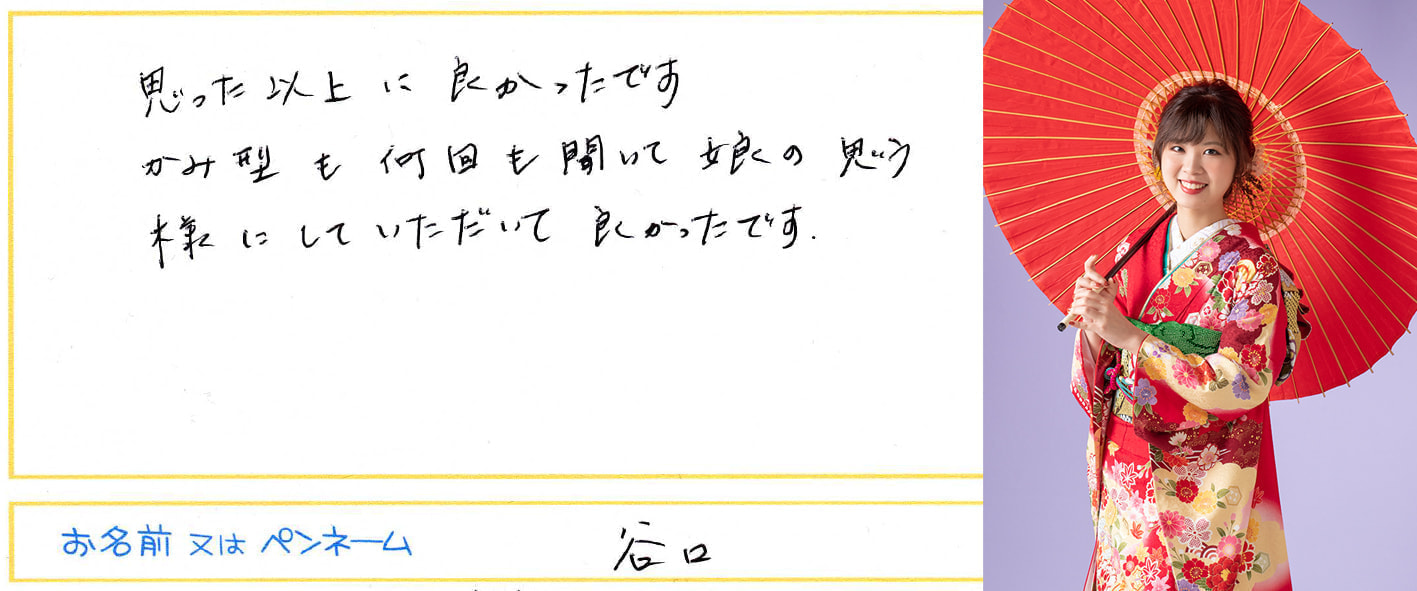 思った以上に良かったです
かみ型も何回も聞いて娘の思う
様にしていただいて良かったです.
お名前又はペンネーム
谷口